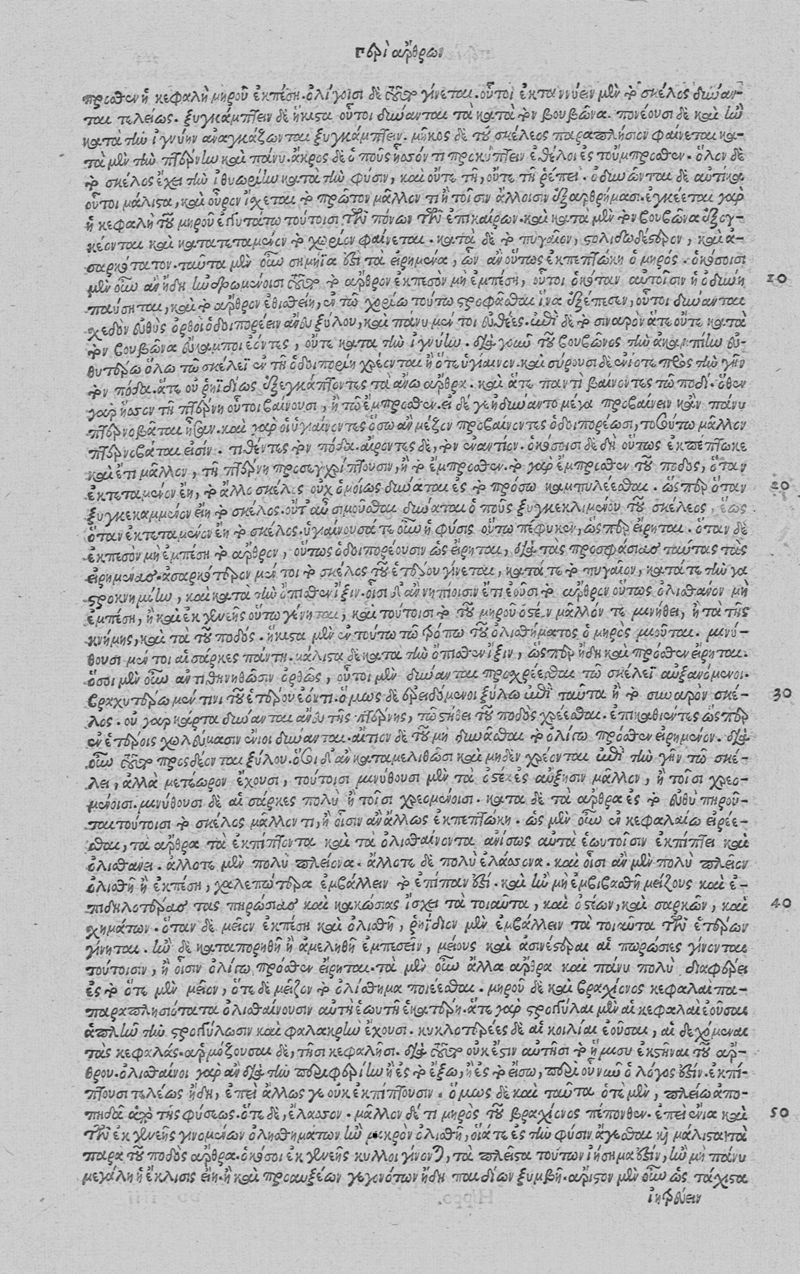 Περὶ ἄρθρων
προσθεν ἡ κεφαλὴ μηροῦ ἐκπέσῃ. ὀλίγοισι δὲ τοῦτο γίνεται. οὗτοι ἐκτανύειν μὲν τὸ σκέλος δύναν-
ται τελείως. ξυγκάμπτειν δὲ ἥκιστα οὗτοι δύνανται τὰ κατὰ τὸν βουβῶνα. πονέουσι δὲ καὶ ἢν
κατὰ τὴν ἰγνύην ἀναγκάζωνται ξυγκάμπτειν. μῆκος δὲ τοῦ σκέλεος παραπλήσιον φαίνεται κα-
τὰ μὲν τὴν πτέρνην καὶ πάνυ. ἄκρος δὲ ὁ ποὺς ἧσσόν τι προκύπτειν ἐθέλοι ἐς τοὔμπροσθεν. ὅλον δὲ
τὸ σκέλος ἔχει τὴν ἰθυωρίην κατὰ τὴν φύσιν, καὶ οὔτε τῇ, οὔτε τῇ ῥέπει. ὀδυῶνται δὲ αὐτίκα
οὗτοι μάλιστα, καὶ οὖρον ἴσχεται τὸ πρῶτον μᾶλλόν τι ἢ τοῖσιν ἄλλοισιν ἐξαρθρήμασι. ἐγκέεται γὰρ
ἡ κεφαλὴ τοῦ μηροῦ ἐγγυτάτω τούτοισι τῶν πόνων τῶν ἐπικαίρων. καὶ κατὰ μὲν τὸν βουβῶνα ἐξογ-
κέονται καὶ κατατεταμένον τὸ χωρίον φαίνεται. κατὰ δὲ τὸ πυγαῖον, στολιδωδέστερον, καὶ ἀ-
σαρκότατον. ταῦτα μὲν οὖν σημήϊά ἐστι τὰ εἰρημένα, ὧν ἂν οὕτως ἐκπεπτώκῃ ὁ μηρός. ὁκόσοισι
μὲν οὖν ἂν ἤδη ἠνδρωμένοισι τοῦτο τὸ ἄρθρον ἐκπεσὸν μὴ ἐμπέσῃ, οὗτοι ὁκόταν αὐτοῖσιν ἡ ὀδύνη
παύσηται, καὶ τὸ ἄρθρον ἐθισθείη, ἐν τῷ χωρίῳ τούτῳ στροφᾶσθαι ἵνα ἐξέπεσεν, οὗτοι δύνανται
σχεδὸν εὐθὺς ὀρθοὶ ὁδοιπορέειν ἄνευ ξύλου, καὶ πάνυ μέν τοι εὐθέες. ἐπὶ δὲ τὸ σιναρὸν ἅτε οὔτε κατὰ
τὸν βουβῶνα εὔκαμποι ἐόντες, οὔτε κατὰ τὴν ἰγνύην. διὰ γοῦν τοῦ βουβῶνος τὴν ἀκαμπίην εὐ-
θυτέρῳ ὅλῳ τῷ σκέλει ἐν τῇ ὁδοιπορίῃ χρέονται ἢ ὅτε ὑγίαινον. καὶ σύρουσι δὲ ἐνίοτε πρὸς τὴν γῆν
τὸν πόδα. ἅτε οὐ ῥηϊδίως ἐξεγκάπτοντες τὰ ἄνω ἄρθρα. καὶ ἅτε παντὶ βαίνοντες τῷ ποδί. ὅθεν
γὰρ ἧσσον τῇ πτέρνῃ οὗτοι βαίνουσι, ἢ τῷ ἔμπροσθεν. εἰ δέ γε ἠδύναντο μέγα προβαίνειν κἂν πάνυ
πτερνοβάται ἦσαν. καὶ γὰρ οἱ ὑγιαίνοντες ὅσῳ ἂν μέζον προβαίνοντες ὁδοιπορέωσι, τοσούτῳ μᾶλλον
πτερνοβάται εἰσίν. τιθέντες τὸν πόδα. αἴροντες δὲ, τὸν ἐναντίον. ὁκόσοισι δὲ δὴ οὕτως ἐκπέπτωκε
καὶ ἔτι μᾶλλον, τῇ πτέρνῃ προσεγχρίπτουσιν, ἢ τῷ ἔμπροσθεν. τὸ γὰρ ἔμπροσθεν τοῦ ποδὸς, ὅταν
ἐκτεταμένον ἔῃ, τὸ ἄλλο σκέλος οὐχ ὁμοίως δύναται ἐς τὸ πρόσω καμπυλέεσθαι. ὥσπερ ὅταν
ξυγκεκαμμένον ἔῃ τὸ σκέλος. οὔτ' αὖ σιμοῦσθαι δύναται ὁ ποὺς ξυγκεκλιμένου τοῦ σκέλεος, ἕως
ὅταν ἐκτεταμένον ἔῃ τὸ σκέλος. ὑγιαίνουσά τε οὖν ἡ φύσις οὕτω πέφυκεν, ὥσπερ εἴρηται. ὅταν δὲ
ἐκπεσὸν μὴ ἐμπέσῃ τὸ ἄρθρον, οὕτως ὁδοιπορέουσιν ὡς εἴρηται, διὰ τὰς προφάσιας ταύτας τὰς
εἰρημένας. ἀσαρκότερον μέν τοι τὸ σκέλος τοῦ ἑτέρου γίνεται, κατά τε τὸ πυγαῖον, κατά τε τὴν γα
στροκνημίην, καὶ κατὰ τὴν ὄπισθεν ἴξιν. οἷσι δ' ἂν νηπίοισιν ἔτι ἐοῦσι τὸ ἄρθρον οὕτως ὀλισθανὸν μὴ
ἐμπέσῃ, ἢ καὶ ἐκ γενεῆς οὕτω γένηται, καὶ τούτοισι τὸ τοῦ μηροῦ ὀστέον μᾶλλόν τε μινύθει, ἢ τὰ τῆς
κνήμης, καὶ τὰ τοῦ ποδός. ἥκιστα μὴν ἐν τούτῳ τῷ τρόπῳ τοῦ ὀλισθήματος ὁ μηρὸς μειοῦται. μινύ-
θουσι μέν τοι αἱ σάρκες πάντη. μάλιστα δὲ κατὰ τὴν ὄπισθεν ἴξιν, ὥσπερ ἤδη καὶ πρόσθεν εἴρηται.
ὅσοι μὲν οὖν ἂν τιθηνηθῶσιν ὀρθῶς, οὗτοι μὲν δύνανται προχρέεσθαι τῷ σκέλει αὐξανόμενοι.
βραχυτέρῳ μέν τινι τοῦ ἑτέρου ἐόντι. ὅμως δὲ ἐρειδόμενοι ξύλῳ ἐπὶ ταῦτα ᾗ τὸ σιναρὸν σκέ-
λος. οὐ γὰρ κάρτα δύνανται ἄνευ τῆς πτέρνης, τῷ στήθει τοῦ ποδὸς χρέεσθαι. ἐπικαθιέντες ὥσπερ
ἐν ἑτέροις χωλεύμασιν ἔνιοι δύνανται. αἴτιον δὲ τοῦ μὴ δύνασθαι τὸ ὀλίγῳ πρόσθεν εἰρημένον. διὰ
οὖν τοῦτο προσδέονται ξύλου. ὅσοι δ' ἂν καταμεληθῶσι καὶ μηδὲν χρέονται ἐπὶ τὴν γῆν τῷ σκέ-
λει, ἀλλὰ μετέωρον ἔχουσι, τούτοισι μινύθουσι μὲν τὰ ὀστέα ἐς αὔξησιν μᾶλλον, ἢ τοῖσι χρεο-
μένοισι. μινύθουσι δὲ αἱ σάρκες πολὺ ἢ τοῖσι χρεομένοισι. κατὰ δὲ τὰ ἄρθρα ἐς τὸ εὐθὺ πηροῦ-
ται τούτοισι τὸ σκέλος μᾶλλόν τι, ἢ οἷσιν ἂν ἄλλως ἐκπεπτώκῃ. ὡς μὲν οὖν ἐν κεφαλαίῳ εἰρέε-
σθαι, τὰ ἄρθρα τὰ ἐκπίπτοντα καὶ τὰ ὀλισθαίνοντα ἀνίσως αὐτὰ ἑωυτοῖσιν ἐκπίπτει καὶ
ὀλισθάνει. ἄλλοτε μὲν πολὺ πλείονα. ἄλλοτε δὲ πολὺ ἐλάσσονα. καὶ οἷσι ἂν μὲν πολὺ πλεῖον
ὀλισθῇ ἢ ἐκπέσῃ, χαλεπώτερα ἐμβάλλειν τὸ ἐπίπαν ἐστί. καὶ ἢν μὴ ἐμβιβασθῇ μείζους καὶ ἐ-
πιδηλοτέρας τὰς πηρώσιας καὶ κακώσιας ἴσχει τὰ τοιαῦτα, καὶ ὀστέων, καὶ σαρκῶν, καὶ
σχημάτων. ὅταν δὲ μεῖον ἐκπέσῃ καὶ ὀλισθῇ, ῥηΐδιον μὲν ἐμβάλλειν τὰ τοιαῦτα τῶν ἑτέρων
γίνηται. ἢν δὲ καταπορηθῇ ἢ ἀμεληθῇ ἐμπεσεῖν, μείους καὶ ἀσινέστεραι αἱ πωρώσιες γίνονται
τούτοισιν, ἢ οἷσιν ὀλίγῳ πρόσθεν εἴρηται. τὰ μὲν οὖν ἄλλα ἄρθρα καὶ πάνυ πολὺ διαφέρει
ἐς τὸ ὁτὲ μὲν μεῖον, ὁτὲ δὲ μεῖζον τὸ ὀλίσθημα ποιέεσθαι. μηροῦ δὲ καὶ βραχίονος κεφαλαὶ πα-
παραπλησιότατα ὀλισθαίνουσιν αὐτὴ ἑωυτῇ ἑκατέρη. ἅτε γὰρ στρογγύλαι μὲν αἱ κεφαλαὶ ἐοῦσαι
ἁπλῆν τὴν στρογγύλωσιν καὶ φαλακρὴν ἔχουσι. κυκλοτερέες δὲ αἱ κοιλίαι ἐοῦσαι, αἱ δεχόμεναι
τὰς κεφαλάς. ἁρμόζουσαι δὲ, τῇσι κεφαλῇσι. διὰ τοῦτο οὐκ ἔστιν αὐτῇσι τὸ ἥμισυ ἐκστῆναι τοῦ ἄρ-
θρου. ὀλισθάνοι γὰρ ἂν διὰ τὴν περιφερίην ἢ ἐς τὸ ἔξω, ἢ ἐς τὸ εἴσω, περὶ οὗ νῦν ὁ λόγος ἐστίν. ἐκπί-
πτουσι τελέως ἤδη, ἐπεὶ ἄλλως γε οὐκ ἐκπίπτουσιν. ὅμως δὲ καὶ ταῦτα ὁτὲ μὲν, πλείω ἀπο-
πηδᾷ ἀπὸ τῆς φύσιος. ὁτὲ δὲ, ἔλασσον. μᾶλλον δέ τι μηρὸς τοῦ βραχίονος πέπονθεν. ἐπεὶ ἔνια καὶ
τῶν ἐκ γενεῆς γινομένων ὀλισθημάτων ἢν μικρὸν ὀλισθῇ, οἷά τε ἐς τὴν φύσιν ἄγεσθαι καὶ μάλιστα τὰ
παρὰ τοῦ ποδὸς ἄρθρα. ὁκόσοι ἐκ γενεῆς κυλλοὶ γίνονται, τὰ πλεῖστα τούτων ἰήσιμά ἐστιν, ἢν μὴ πάνυ
μεγάλη ἡ ἔκλισις ἔῃ. ἢ καὶ προαυξέων γεγονότων ἤδη παιδίων ξυμβῇ. ἄριστον μὲν οὖν ὡς τάχιστα
ἰητρεύειν
10
20
30
40
50